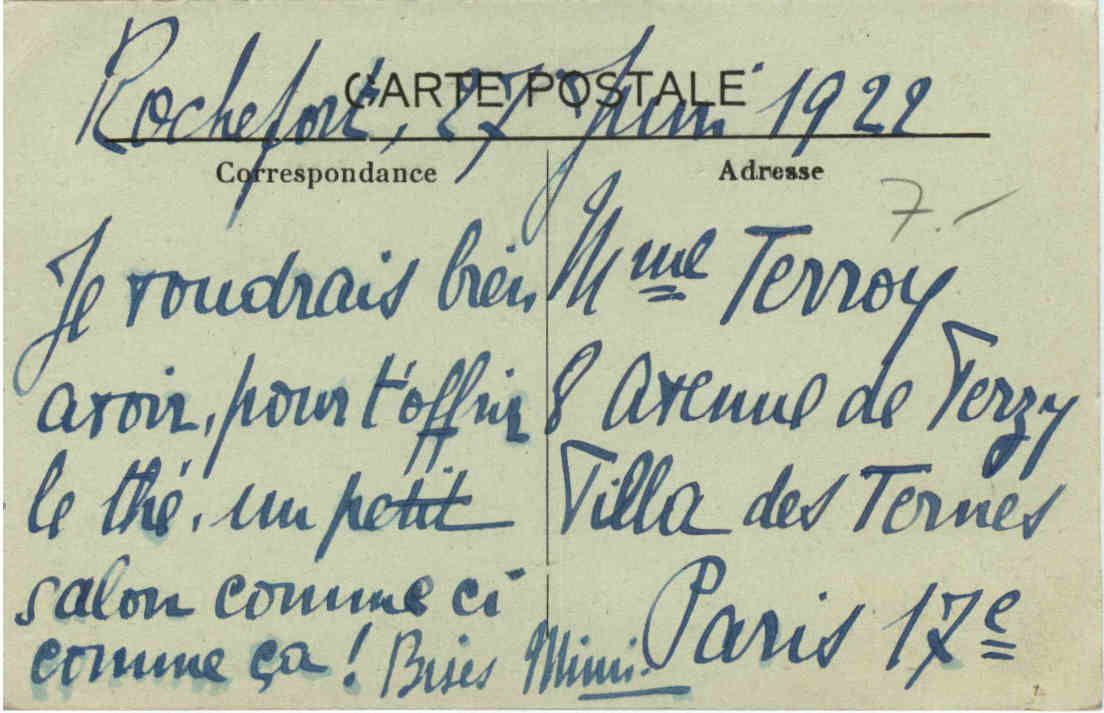 CARTE POSTALE
Rochefort, 27 Juin 1922
Correspondance
Je voudrais bien
avoir, pour t'offrir
le thé, un petit
salon comme ci
comme ça ! Bises Mimi.
Adresse
7.-
Mme Terroy
8 avenue de Verzy
Villa des Ternes
Paris 17e